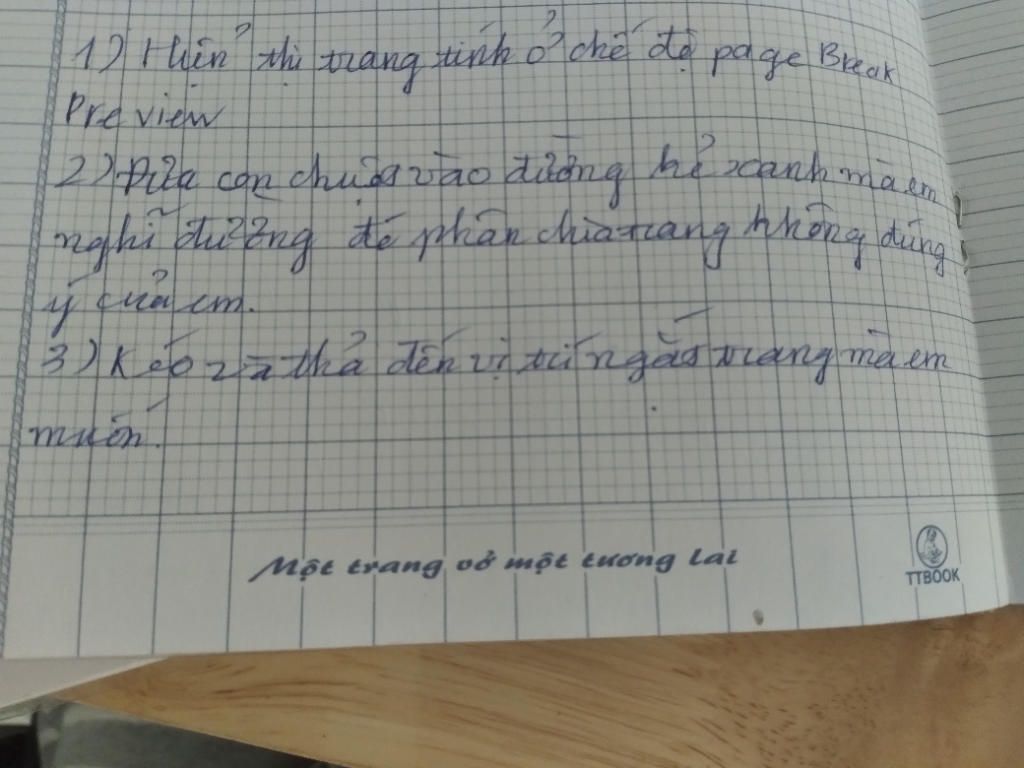 1) Hiển thị trang tính ở chế độ page Break
Preview
2) Đưa con chuột vào đường kẻ xanh mà em
nghĩ đường để phân chia trang không đúng
ý của em.
3) Kéo và thả đến vị trí ngắt trang mà em
muốn.
Một trang vở một tương lai
TTBOOK